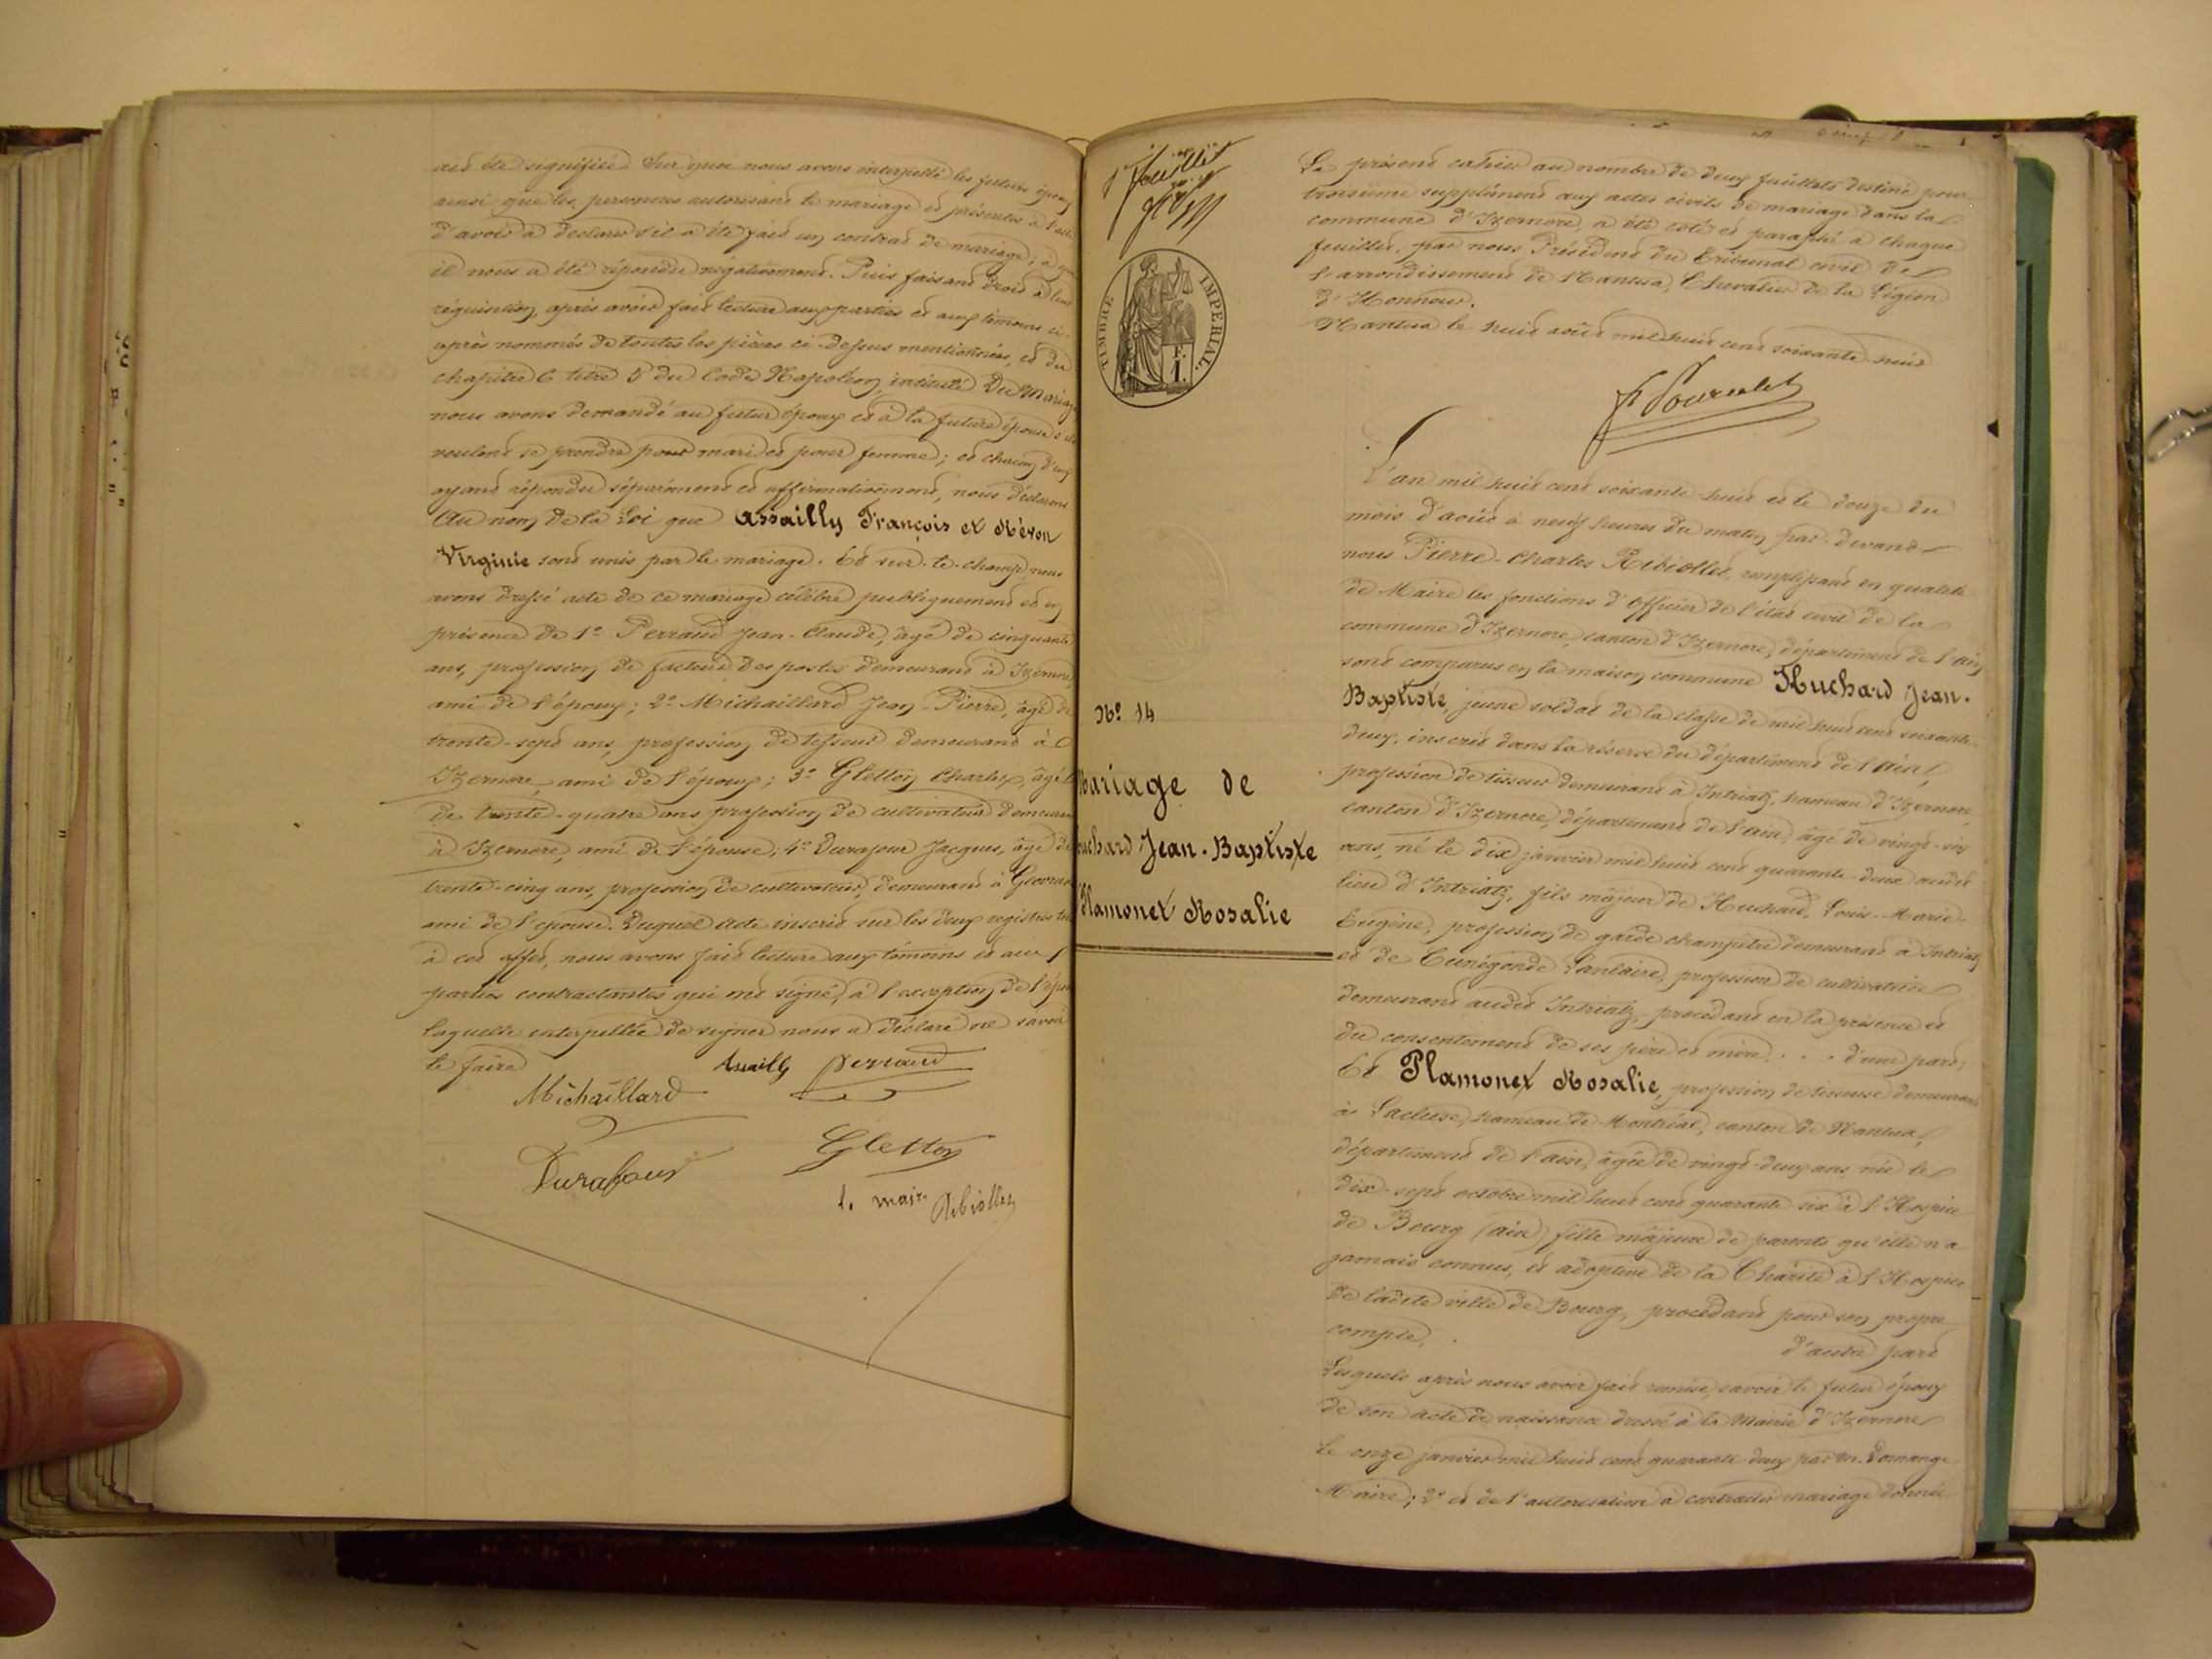 ait été signifiée. Sur quoi nous avons interpellé les futurs époux
ainsi que les personnes autorisant le mariage et présentes à l'acte
d'avoir à déclarer s'il a été fait un contrat de mariage; à quoi
il nous a été répondu négativement. Puis faisant droit à leur
réquisition, après avoir fait lecture aux parties et aux témoins ci-
après nommés de toutes les pièces ci-dessus mentionnées, et du
chapitre 6 titre 5 du Code Napoléon, intitulé Du Mariage
nous avons demandé au futur époux et à la future épouse s'ils
veulent se prendre pour mari et pour femme; et chacun d'eux
ayant répondu séparément et affirmativement, nous déclarons
Au nom de la Loi que Assailly François et Néron
Virginie sont unis par le mariage. Et sur-le-champ nous
avons dressé acte de ce mariage célébré publiquement et en
présence de 1° Perraud Jean-Claude, âgé de cinquante
ans, profession de facteur des postes demeurant à Izernore
ami de l'époux; 2° Michaillard Jean-Pierre, âgé de
trente-sept ans, profession de tisseur demeurant à
Izernore, ami de l'époux; 3° Gletton Charles, âgé
de trente-quatre ans profession de cultivateur demeurant
à Izernore, ami de l'épouse; 4° Durafour Jacques, âgé de
trente-cinq ans, profession de cultivateur, demeurant à
ami de l'épouse. Duquel Acte inscrit sur les deux registres
à cet effet, nous avons fait lecture aux témoins et aux
parties contractantes qui ont signé, à l'exception de
laquelle interpellée de signer nous a déclaré ne savoir
le faire
Assailly Perraud
Michaillard
Gletton
Durafour
le maire Ribiollet
1r feuillet
TIMBRE IMPERIAL.
N° 14
Mariage de
uchard Jean-Baptiste
Plamonet Rosalie
Le présent cahier au nombre de deux feuillets destiné pour
troisième supplément aux actes civils de mariage dans la
commune d'Izernore, a été coté et paraphé à chaque
feuillet, par nous Président du Tribunal civil de
l'arrondissement de Nantua, Chevalier de la Légion
d'Honneur.
Nantua le huit août mil huit cent soixante-huit
L'an mil huit cent soixante-huit et le douze du
mois d'août à neuf heures du matin par-devant
nous Pierre-Charles Ribiollet, remplissant en qualité
de Maire les fonctions d'Officier de l'état civil de la
commune d'Izernore, canton d'Izernore, département de l'Ain
sont comparus en la maison commune Huchard Jean-
Baptiste, jeune soldat de la classe de mil huit cent soixante-
deux, inscrit dans la réserve du département de l'Ain,
profession de tisseur demeurant à Intriatz, hameau d'Izernore
canton d'Izernore, département de l'Ain, âgé de vingt-six
ans, né le dix janvier mil huit cent quarante-deux audit
lieu d'Intriatz, fils majeur de Huchard, Louis-Marie-
Eugène, profession de garde champêtre demeurant à Intriatz
et de Cunégonde Lanlaire, profession de cultivatrice
demeurant audit Intriatz, procédant en la présence et
du consentement de ses père et mère . . . d'une part;
Et Plamonet Rosalie, profession de tisseuse demeurant
à Lacluse, hameau de Montréal, canton de Nantua,
département de l'Ain, âgée de vingt-deux ans, née le
dix-sept octobre mil huit cent quarante-six à l'Hospice
de Bourg (Ain), fille majeure de parents qu'elle n'a
jamais connus, et adoptive de la Charité à l'Hospice
de ladite ville de Bourg, procédant pour son propre
compte, . d'autre part
Lesquels après nous avoir fait remise, savoir le futur époux
de son acte de naissance dressé à la Mairie d'Izernore
le onze janvier mil huit cent quarante-deux par M. Domange
Maire; 2° et de l'autorisation à contracter mariage donnée